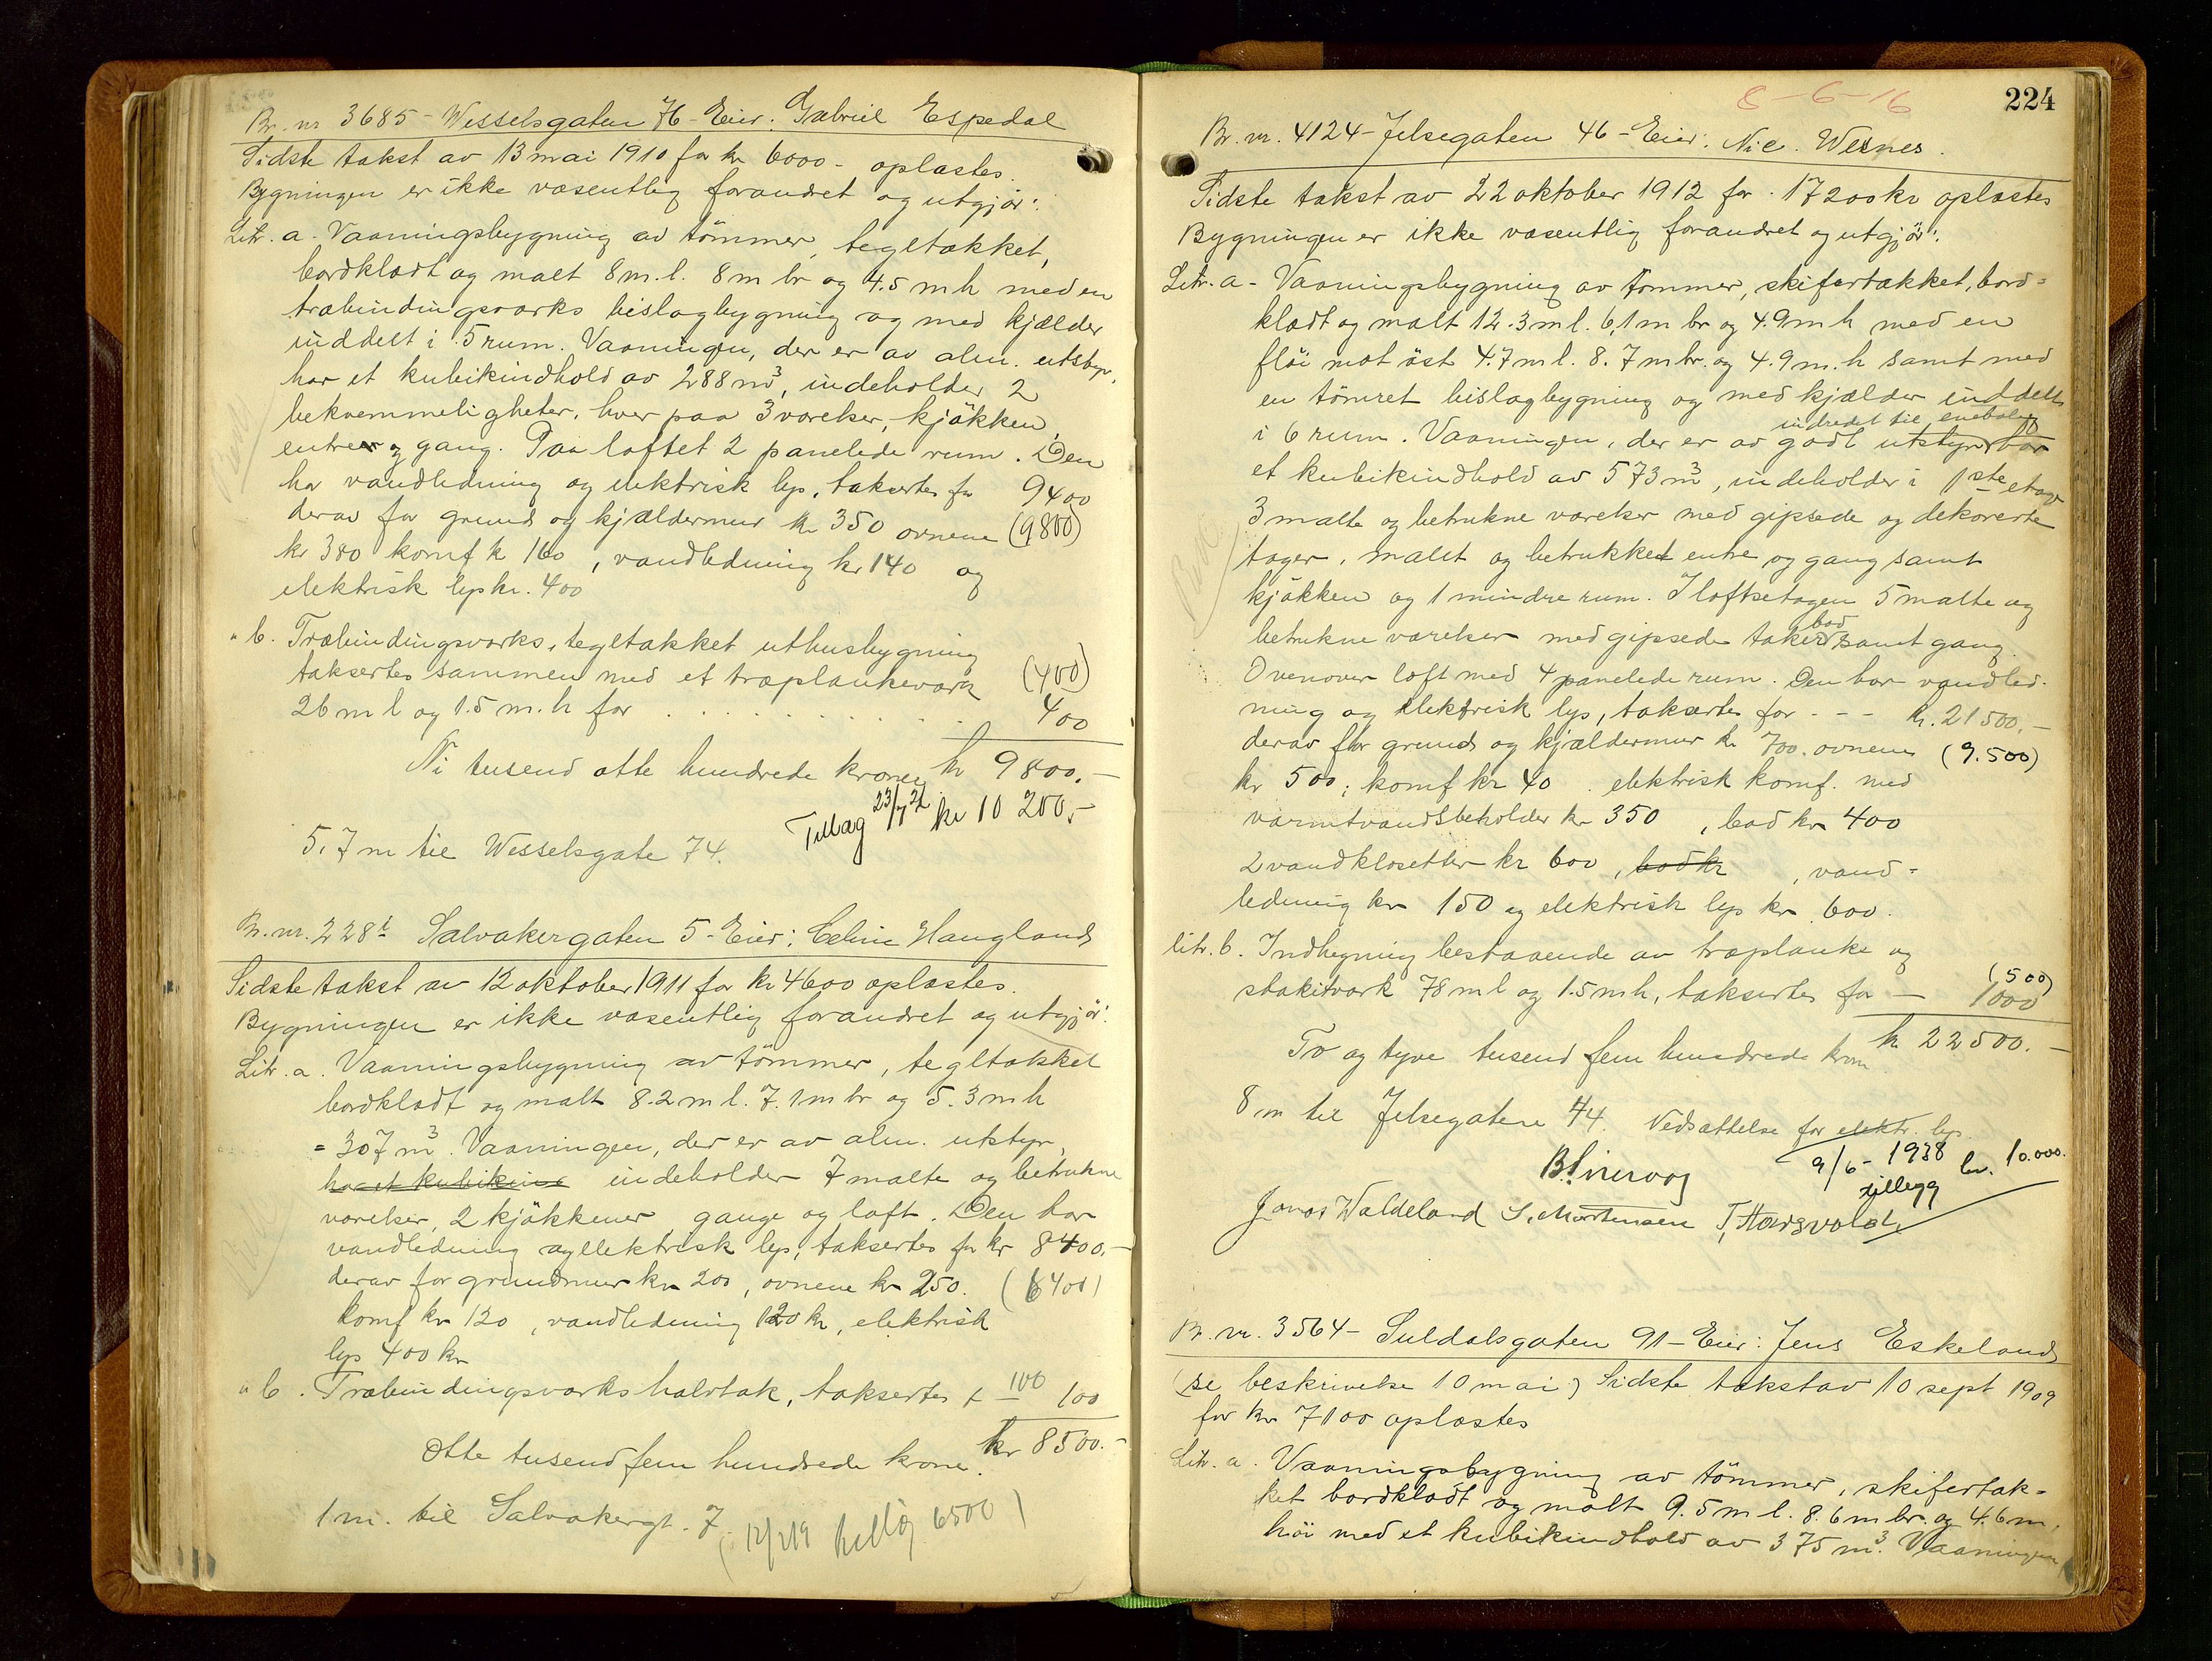 Br. nr 3685 - Wesselsgaten 76 - Eier: Gabriel Espedal
Sidste takst av 13 mai 1910 for kr 6000 - oplæstes.
Bygningen er ikke væsentlig forandret og utgjør:
Litr. a. Vaaningsbygning av tömmer, tegltækket,
bordklædt og malt 8 m. l. 8 m br og 4.5 m h med en
træbindingsværks bislagbygning og med kjælder
inddelt i 5 rum. Vaaningen, der er av alm. utstyr,
har et kubikindhold av 288 m³, indeholder 2
bekvemmeligheter, hver paa 3 værelser, kjökken,
entre og gang. Paa loftet 2 panelede rum. Den
har vandledning og elektrisk lys, taksertes for 9400
derav for grund og kjældermur kr 350 ovnene (9800)
kr 380 komf k 160, vandledning kr 140 og
elektrisk lys kr. 400
" b. Træbindingsværks, tegltækket uthusbygning
taksertes sammen med et træplankeværk (400)
26 m l og 1.5 m. h for . . . . . . . . 400
Ni tusend otte hundrede kroner kr 9800.-
Tillæg 23/7 21 kr 10 200,-
5.7 m til Wesselsgate 74.
Br. nr. 228 Salvakergaten 5 - Eier: Celine Haugland
Sidste takst av 12 oktober 1911 for kr 4600 oplæstes.
Bygningen er ikke væsentlig forandret og utgjör:
Litr. a. Vaaningsbygning av tömmer, tegltækket
bordklædt og malt 8.2 m l. 7.1 m br og 5.3 m h
= 307 m³. Vaaningen, der er av alm. utstyr,
har et kubikind indeholder 7 malte og betrukne
værelser, 2 kjökkener, gange og loft. Den har
vandledning og elektrisk lys, taksertes for kr 8400.-
derav for grundmur kr 200, ovnene kr 250. (6400)
komf kr 120, vandledning 120 kr, elektrisk
lys 400 kr
" b. Træbindingsværks halvtak, taksertes f 100 100
Otte tusend fem hundrede krone. kr 8500.-
1 m. til Salvakergt. 7. (12/219 tillæg 6500)
224
8-6-16
Br. nr. 4124 - Jelsegaten 46 - Eier: Nic. Wesnes.
Sidste takst av 22 oktober 1912 for 17200 kr oplæstes
Bygningen er ikke væsentlig forandret og utgjör:
Litr. a - Vaaningsbygning av tömmer, skifertækket, bord=
klædt og malt 12.3 m l. 6,1 m br og 4.9 m h med en
flöi mot öst 4.7 m l. 8.7 m br. og 4.9 m. h samt med
en tömret bislagbygning og med kjælder inddelt
indredet til enebolig
i 6 rum. Vaaningen, der er av godt utstyr har
et kubikindhold av 573 m³, indeholder i 1ste etage
3 malte og betrukne værelser med gipsede og dekorerte
tager, malet og betrukket entre og gang samt
kjökken og 1 mindre rum. I loftsetagen 5 malte og
bad
betrukne værelser med gipsede taker samt gang.
Ovenover loft med 4 panelede rum. Den har vandled-
ning og elektrisk lys, taksertes for - - - kr. 21500,-
derav for grund og kjældermur kr 700. ovnene (9.500)
kr 500; komf kr 40 . elektrisk komf. med
varmtvandsbeholder kr 350, bad kr 400
2 vandklosetter kr 600, bad kr , vand=
ledning kr 150 og elektrisk lys kr 600.
litr. b. Indhegning bestaaende av træplanke og
(500)
stakitværk 78 m l og 1.5 m h, taksertes for — 1000
To og tyve tusend fem hundrede krone kr 22500.-
8 m til Jelsegatene 44. Nedsættelse for elektr. lys.
9/6 - 1938 kr. 10.000.
tillegg
Jonas Waldeland S. Mortensen
Br. nr. 3564 - Suldalsgaten 91 - Eier: Jens Eskeland
(se beskrivelse 10 mai) Sidste takst av 10 sept 1909
for kr 7100 oplæstes
Litr. a. Vaaningsbygning av tömmer, skifertæk-
ket bordklædt og malt 9.5 m l. 8.6 m br. og 4.6 m,
höi med et kubikindhold av 375 m³. Vaaningen